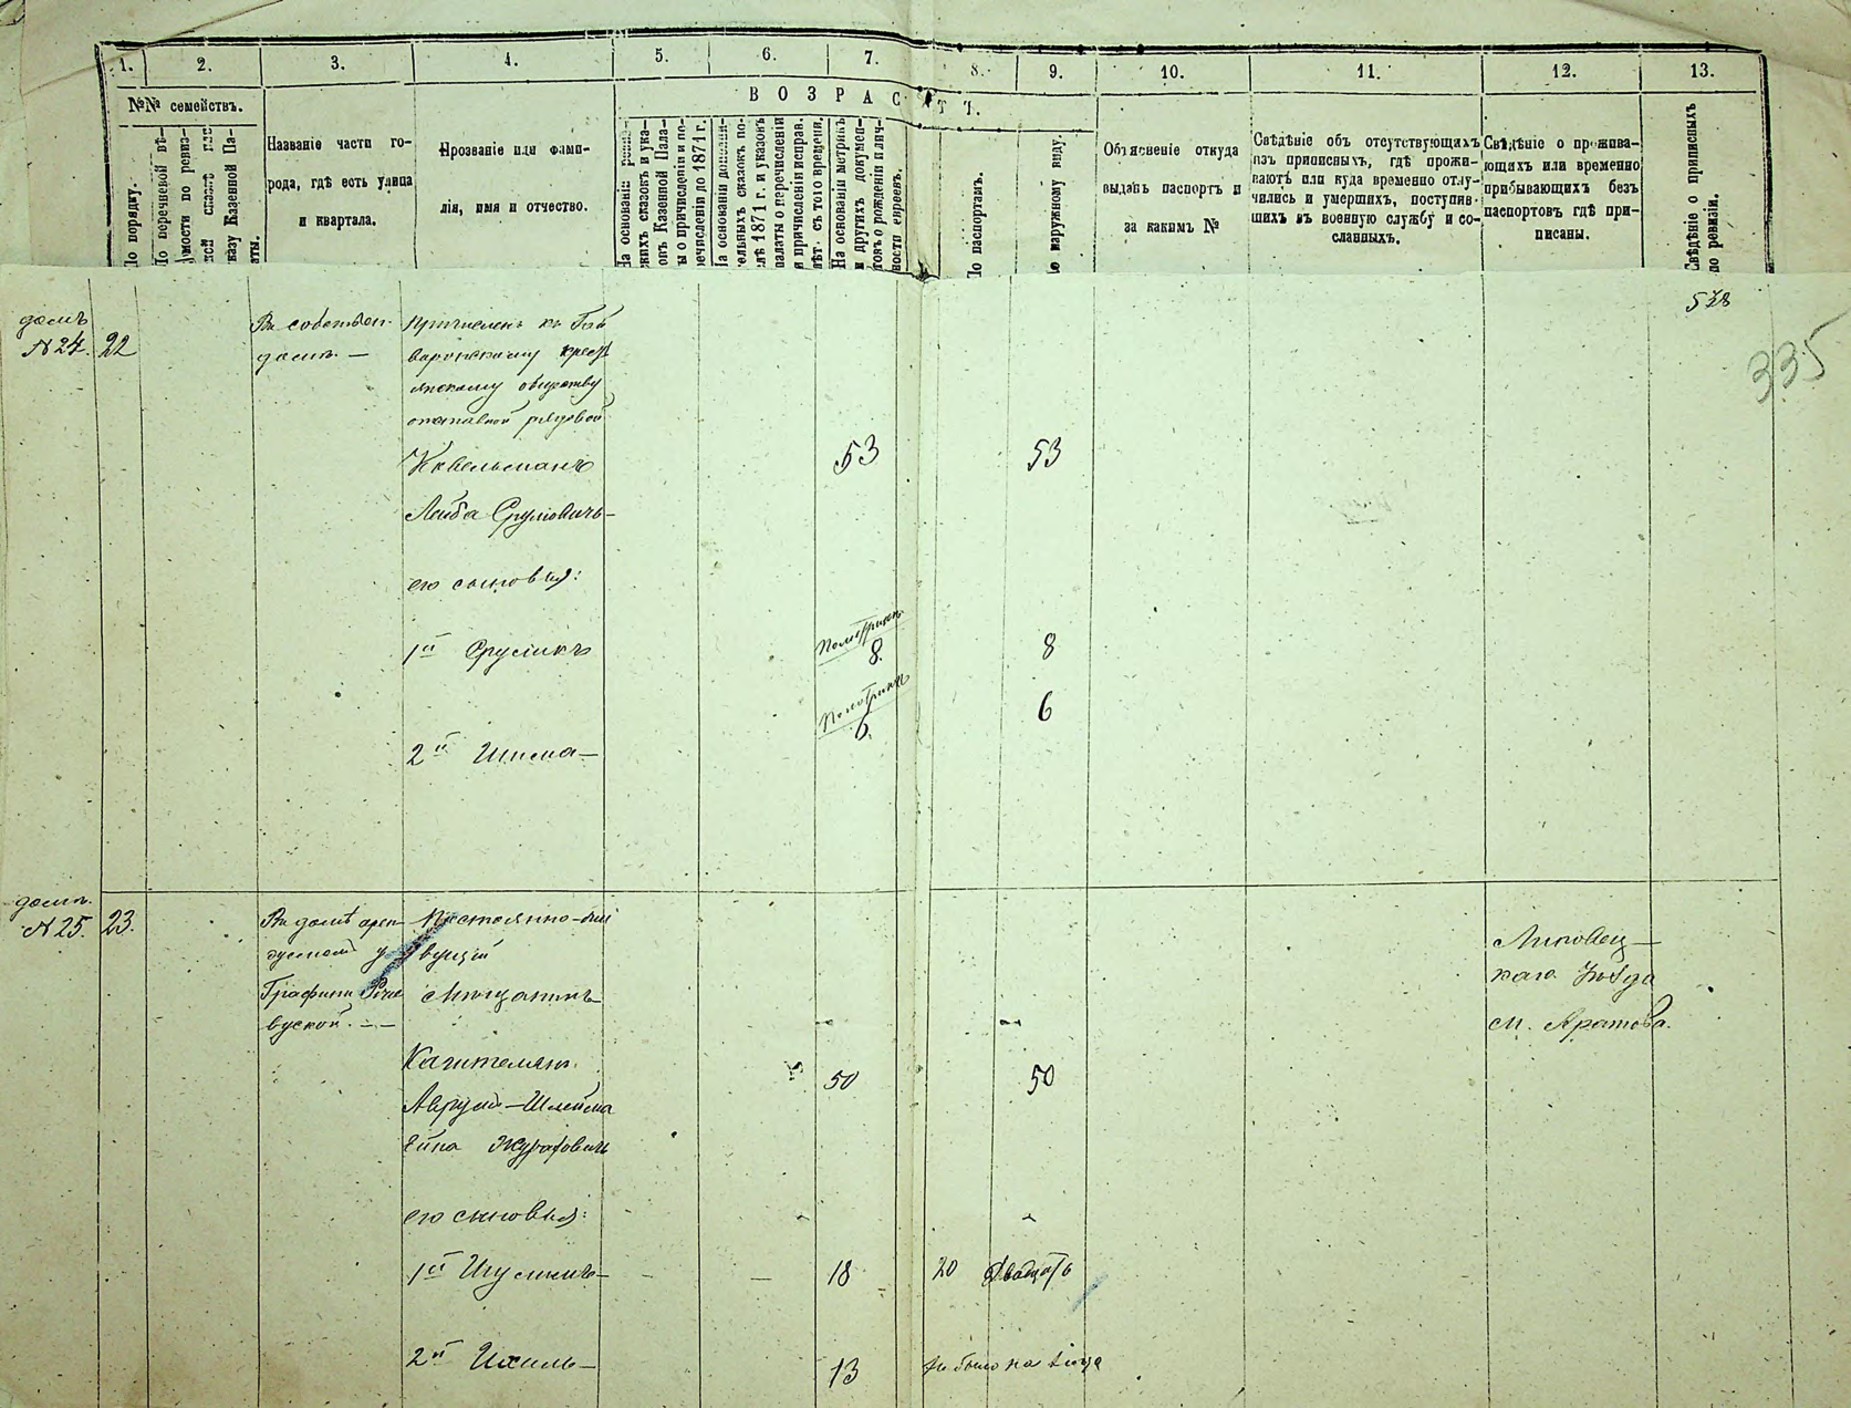 1. 2. 3. 4. 5. 6. 7. 8. 9. 10. 11. 12. 13.
№№ семействъ.
По порядку.
По перечневой вѣ-
домости по ревиз-
ской сказкѣ или
указу Казенной Па-
латы.
Названіе части го-
рода, гдѣ есть улица
и квартала.
Прозваніе или фами-
лія, имя и отчество.
ВОЗРАСТЪ.
На основаніи ревиз-
скихъ сказокъ и ука-
зовъ Казенной Пала-
ты о причисленіи и пе-
речисленіи до 1871 г.
На основаніи дополни-
тельныхъ сказокъ по-
слѣ 1871 г. и указовъ
палаты о перечисленіи
и причисленіи исправ.
лѣт. съ того времени.
На основаніи метрикъ
и другихъ докумен-
товъ о рожденіи и лич-
ности евреевъ.
По паспортамъ.
По наружному виду.
Объясненіе откуда
выданъ паспортъ и
за какимъ №
Свѣдѣніе объ отсутствующихъ
изъ приписныхъ, гдѣ прожи-
ваютъ или куда временно отлу-
чились и умершихъ, поступив-
шихъ въ военную службу и со-
сланныхъ.
Свѣдѣніе о прожива-
ющихъ или временно
прибывающихъ безъ
паспортовъ гдѣ при-
писаны.
Свѣдѣніе о приписныхъ
по ревизіи.
335
домъ
№ 24. 22
Въ собствен.
домѣ. —
Причисленъ къ
крестьянскому обществу
отставной рядовой
53 53
Лейба Сруловичъ —
его сыновья:
1й Сруликъ
По метрикѣ
8. 8
По метрикѣ
6. 6
2й Шлема —
домъ.
№ 25. 23.
Въ домѣ арен-
дуемомъ у
Графини Рже-
вуской. —
Постоянно-жи
вущій
Мѣщанинъ
50 50
Аврумъ-Шлейма
его сыновья:
1й 18 20 Двадцать
2й Ихиль — 13 Не было на лицо
Липовец—
каго Уѣзда
м.